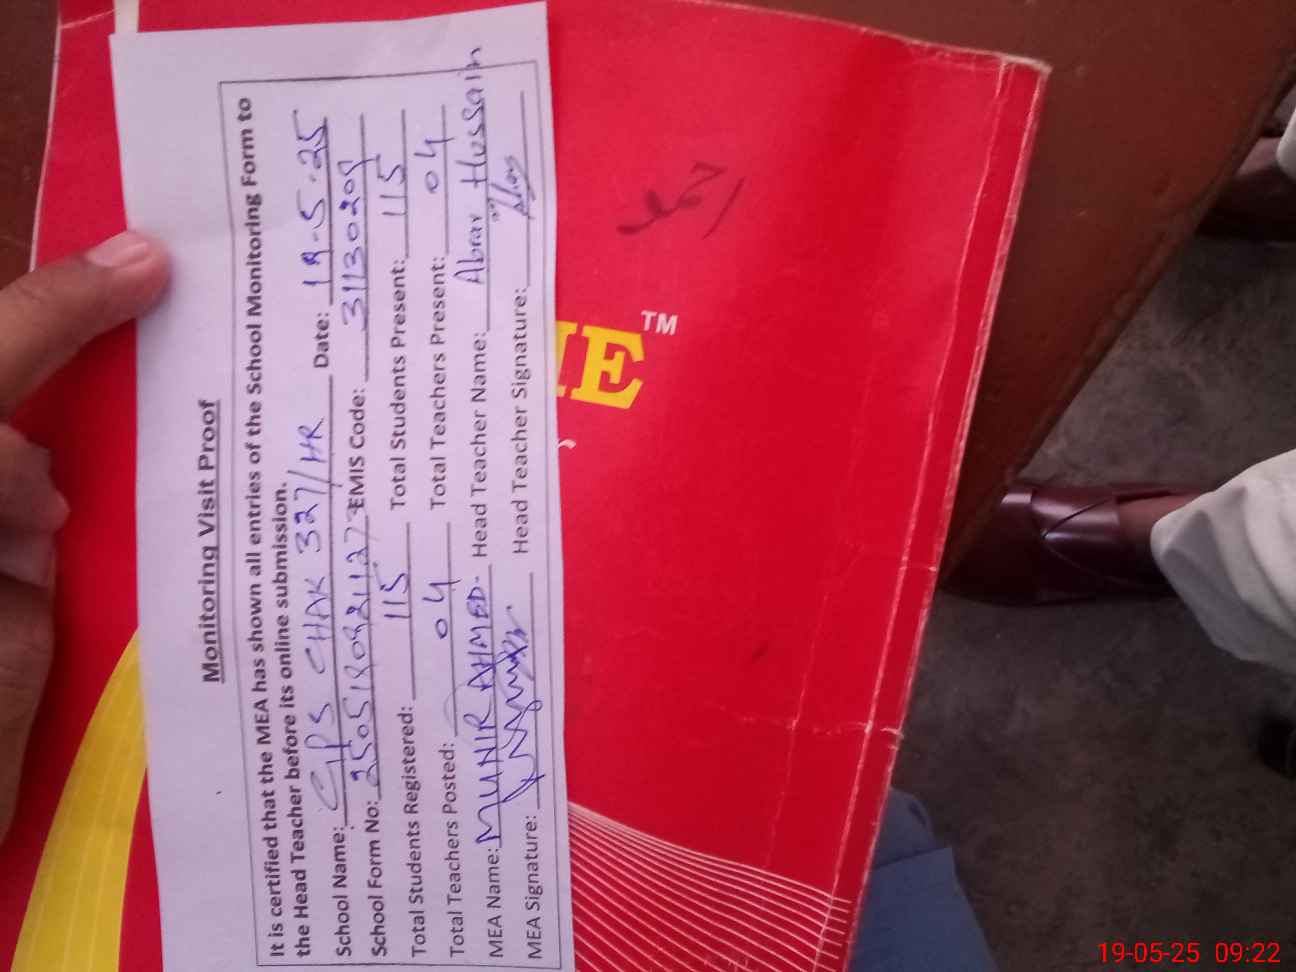 Monitoring Visit Proof
It is certified that the MEA has shown all entries of the School Monitoring Form to
the Head Teacher before its online submission.
School Name: GPS CHAK 327/HR Date: 19-5-25
School Form No: EMIS Code: 31130209
Total Students Registered: 115 Total Students Present: 115
Total Teachers Posted: 04 Total Teachers Present: 04
MEA Name: MUNIR AHMED- Head Teacher Name: Abrar Hussain
MEA Signature: Head Teacher Signature:
احمد
IE™
19-05-25 09:22